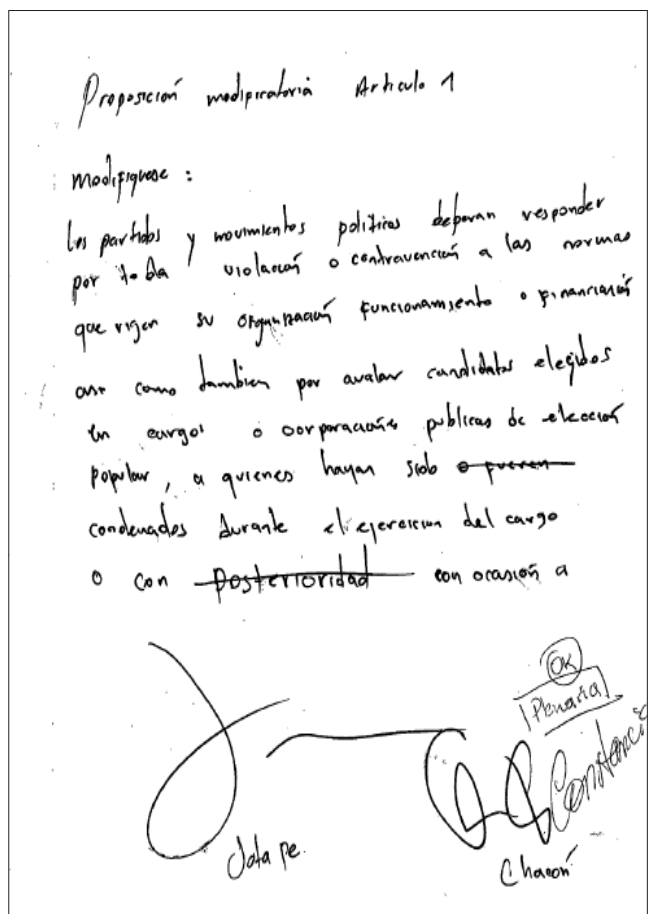 Proposición modificatoria Articulo 1
modifiquese :
Los partidos y movimientos politicos deberan responder
por toda violación o contravención a las normas
que rigen su organización funcionamiento o financiación
asi como tambien por avalar candidatos elegidos
en cargos o corporaciones publicas de elección
popular, a quienes hayan sido o fueren
condenados durante el ejercicio del cargo
o con posterioridad con ocasión a
OK
Plenaria
Constancia
Jota pe.
Chacón